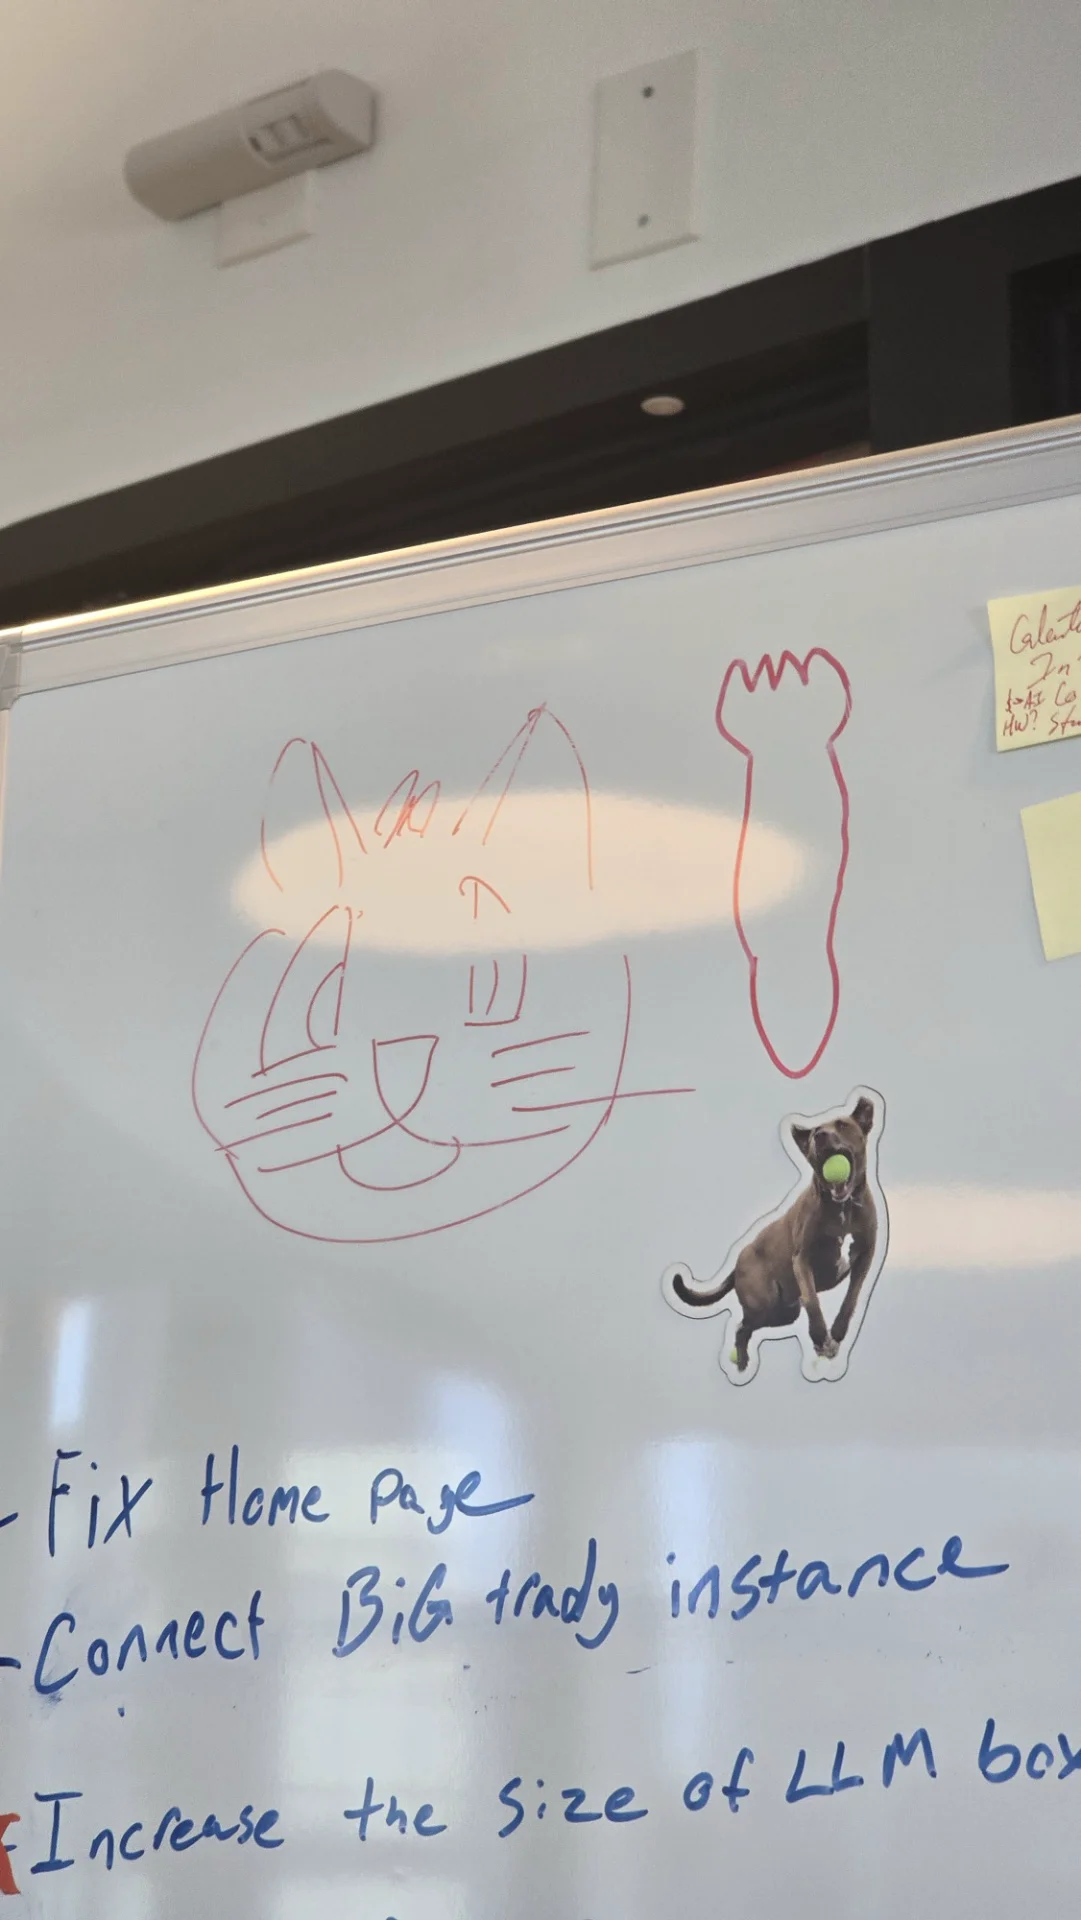 In
AI Co
HW?
- Fix Home Page
- Connect BiG trady instance
- Increase the size of LLM box